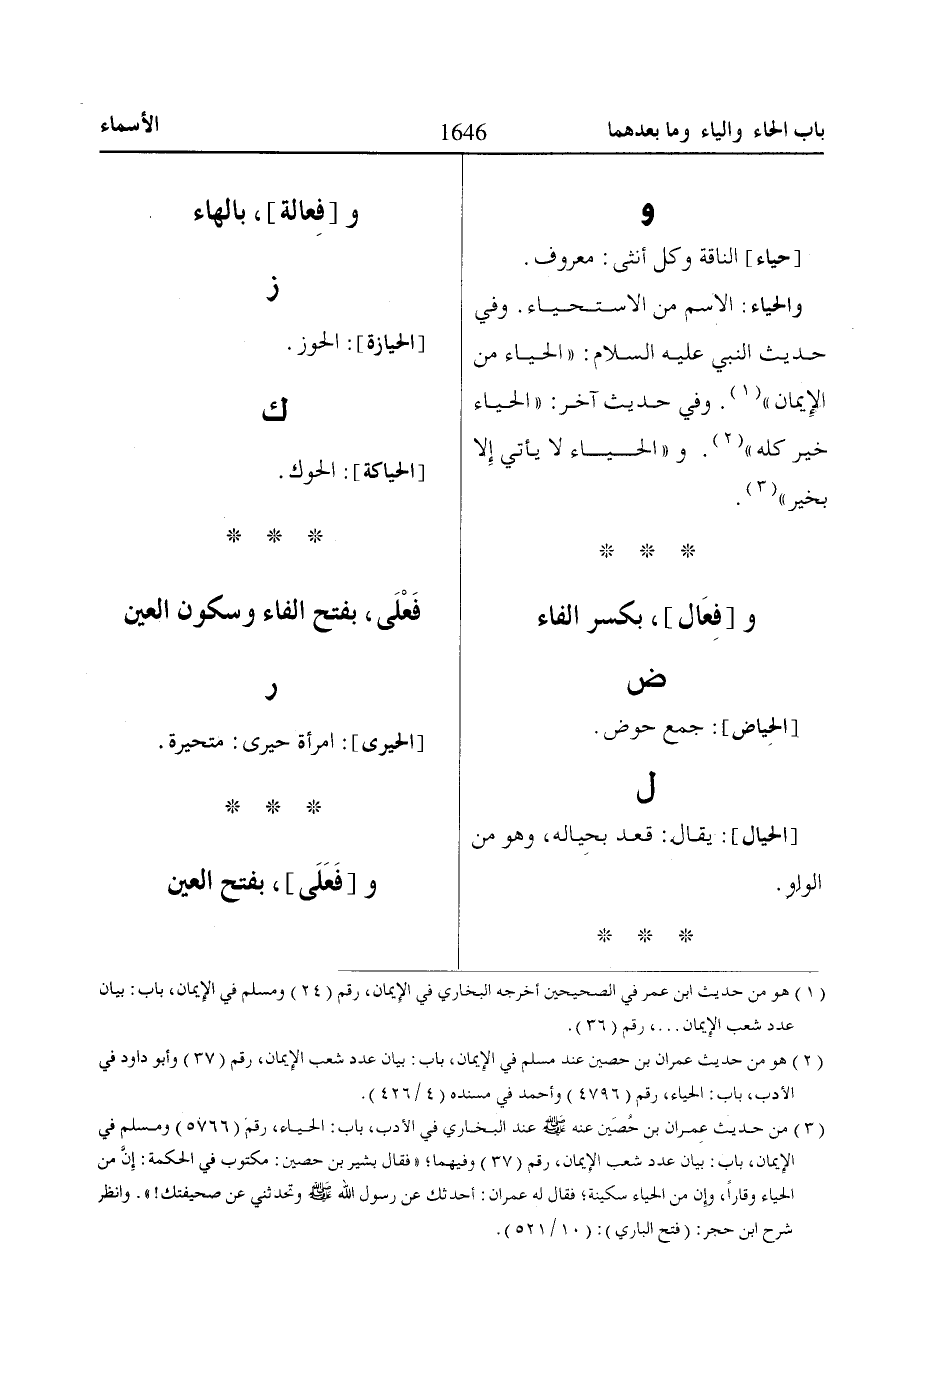 باب الحاء والياء وما بعدهما
1646
الأسماء
و
[حياء] الناقة وكل أنثى: معروف.
والحياء: الاسم من الاستحياء. وفي
حديث النبي عليه السلام: «الحياء من
الإيمان»(١). وفي حديث آخر: «الحياء
خير كله»(٢). و «الحياء لا يأتي إلا
بخير»(٣).
* * *
و [فِعَال]، بكسر الفاء
ض
[الحياض]: جمع حوض.
ل
[الحيال]: يقال: قعد بحِياله، وهو من
الواو.
* * *
و [فِعالة]، بالهاء
ز
[الحيازة]: الحوز.
ك
[الحياكة]: الحوك.
* * *
فَعْلَى، بفتح الفاء وسكون العين
ر
[الحيرى]: امرأة حيرى: متحيرة.
* * *
و [فَعَلَى]، بفتح العين
(١) هو من حديث ابن عمر في الصحيحين أخرجه البخاري في الإيمان، رقم (٢٤) ومسلم في الإيمان، باب: بيان
عدد شعب الإيمان...، رقم (٣٦).
(٢) هو من حديث عمران بن حصين عند مسلم في الإيمان، باب: بيان عدد شعب الإيمان، رقم (٣٧) وأبو داود في
الأدب، باب: الحياء، رقم (٤٧٩٦) وأحمد في مسنده (٤/٤٢٦).
(٣) من حديث عمران بن حُصَين عنه ﷺ عند البخاري في الأدب، باب: الحياء، رقم (٥٧٦٦) ومسلم في
الإيمان، باب: بيان عدد شعب الإيمان، رقم (٣٧) وفيهما؛ «فقال بشير بن حصين: مكتوب في الحكمة: إنَّ من
الحياء وقاراً، وإن من الحياء سكينة؛ فقال له عمران: أحدثك عن رسول الله ﷺ وتحدثني عن صحيفتك!». وانظر
شرح ابن حجر: (فتح الباري): (١٠/٥٢١).